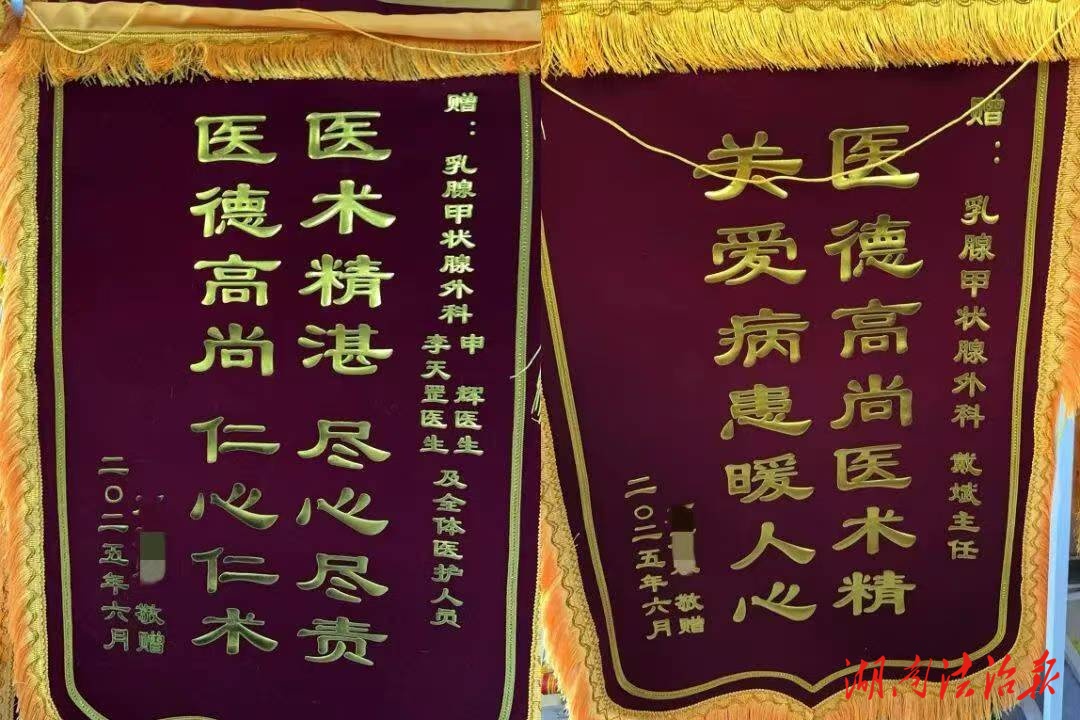 赠：乳腺甲状腺外科 申辉医生 李天罡医生 及全体医护人员
医术精湛 尽心尽责
医德高尚 仁心仁术
敬赠
二〇二五年六月
赠：乳腺甲状腺外科 戴斌主任
医德高尚医术精
关爱病患暖人心
敬赠
二〇二五年六月
湖南法治报